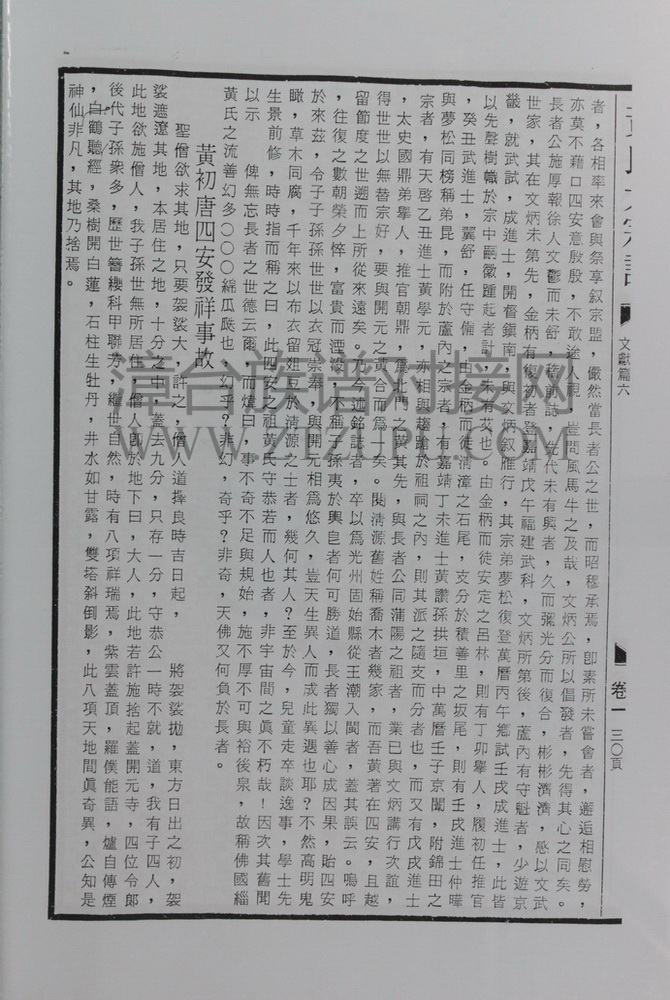 文獻篇六
卷一
三〇頁
者，各相率來會與祭享叙宗盟，儼然當長者公之世，而昭穆承焉，卽素所未嘗會者，邂逅相慰勞，
亦莫不藉口四安意殷殷，不敢塗人視，豈問風馬牛之及哉，文炳公所以倡發者，先得其心之同矣。
長者公施厚報徐人文鬱而未舒，先代未有興者，久而彌光分而復合，彬彬濟濟，感以文武
世家，其在文炳未第先，金柄有復初者登嘉靖戊午福建武科，文炳所第後，蘆內有守魁者，少遊京
畿，就武試，成進士，開督鎮南，與文炳叙雁行，其宗弟夢松復登萬曆丙午鄉試壬戌成進士，此皆
以先聲樹幟於宗中嗣徽踵起者計，未有艾也。由金柄而徙安定之呂林，則有丁卯擧人，履初任推官
，癸丑武進士，翼舒，任守備，由金柄而徙淸漳之石尾，支分於積善里之坂尾，則有壬戌進士仲曄
與夢松同榜稱弟昆，而附於蘆內之宗者，有嘉靖丁未進士黃讚孫拱垣，中萬曆壬子京闈，附錦田之
宗者，有天啓乙丑進士黃學元，亦相與趨蹌於祖祠之內，則其派之隨支而分者也，而又有戊戌進士
，太史國鼎弟擧人，推官朝鼎，爲北門之黃其先，與長者公同蒲陽之祖者，業已與文炳講行次誼，
得世世以無替宗好，要與開元之兩合而爲十矣。閱淸源舊姓稱喬木者幾家，而吾黃著在四安，且越
留節度之世遡而上所從來遠矣。尤今述銘誌者，卒以爲光州固始縣從王潮入閩者，蓋其誤云。嗚呼
，往復之數朝榮夕悴，富貴而湮沒，不稱子孫夷於輿皂者何可勝道，長者獨以善心成因果，貽四安
於來茲，令子子孫孫世世以衣冠崇奉，與開元相爲悠久，豈天生異人而或此異遇也耶？不然高明鬼
瞰，草木同腐，千年來以布衣留俎豆於淸源之士者，幾何其人？至於今，兒童走卒談逸事，學士先
生景前修，時時指而稱之曰，此四安之祖黃氏守恭若而人也者，非宇宙間之眞不朽哉！因次其舊聞
以示　俾無忘長者之世德云爾，而煒曰，事不奇不足與規始，施不厚不可與裕後泉，故稱佛國緇
黃氏之流善幻多〇〇〇綿瓜瓞也，幻乎？非幻，奇乎？非奇，天佛又何負於長者。
黃初唐四安發祥事故
聖僧欲求其地，只要袈裟大，許之，僧人道擇良時吉日起，　將袈裟拋，東方日出之初，袈
裟遮遼其地，本居住之地，十分之中，蓋去九分，只存一分，守恭公一時不就，道，我有子四人，
此地欲施僧人，我子孫世無所居住，僧人卽於地下曰，大人，此地若許施捨起蓋開元寺，四位令郎
後代子孫衆多，歷世簪纓科甲聯芳，繼世自然，時有八項祥瑞焉，紫雲蓋頂，羅僕能語，爐自傳煙
，白鶴聽經，桑樹開白蓮，石柱生牡丹，井水如甘露，雙塔斜倒影，此八項天地間眞奇異，公知是
神仙非凡，其地乃捨焉。
漳台族谱对接网
WWW.ZTZUPU.COM